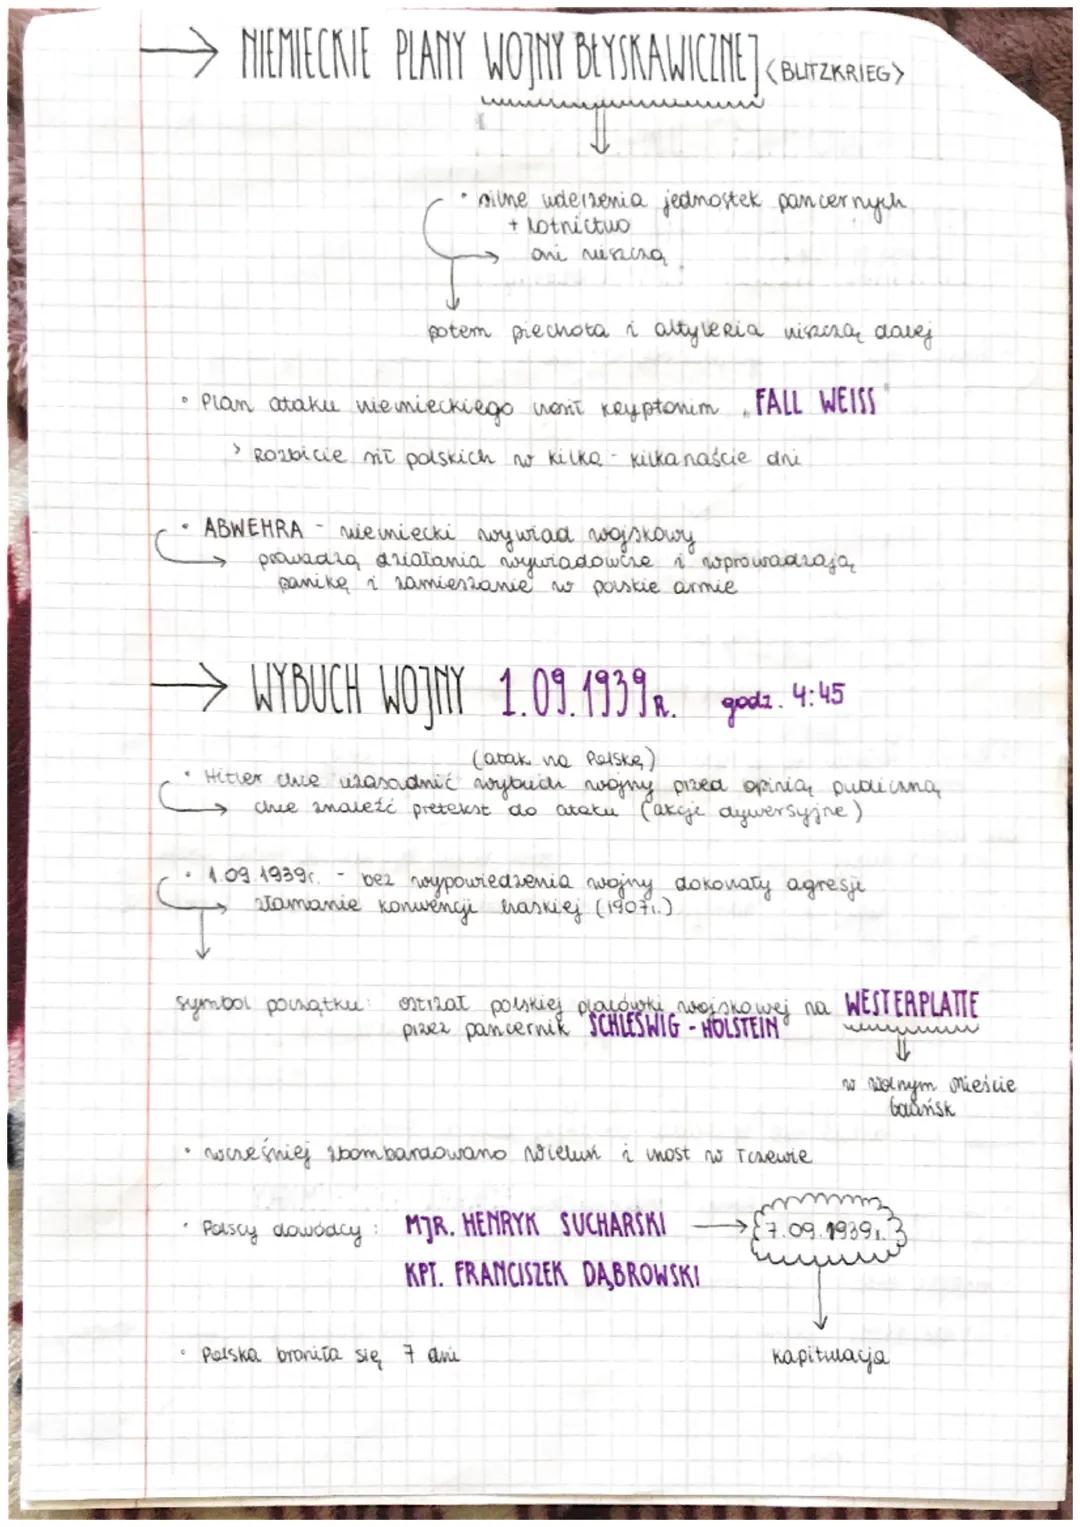 → NIEMIECKIE PLANY WOJNY BŁYSKAWICZNEJ <BLITZKRIEG>
• silne uderzenia jednostek pancernych
+ lotnictwo
→ oni niszczą
potem piechota i altyleria niszczą dalej
• Plan ataku niemieckiego nosił kryptonim „FALL WEISS"
> Rozbicie sił polskich w kilka - kilkanaście dni
• ABWEHRA - niemiecki wywiad wojskowy
→ prowadzą działania wywiadowcze i wprowadzają
panikę i zamieszanie w polskie armie
→ WYBUCH WOJNY 1.09.1939R. godz. 4:45
(atak na Polskę)
• Hitler chce uzasadnić wybuch wojny przed opinią publiczną
→ chce znaleźć pretekst do ataku (akcje dywersyjne)
• 1.09.1939r. - bez wypowiedzenia wojny dokonały agresji
→ złamanie konwencji haskiej (1907r.)
symbol początku: ostrzał polskiej placówki wojskowej na WESTERPLATTE
przez pancernik SCHLESWIG - HOLSTEIN
w Wolnym Mieście
Gdańsk
• wcześniej zbombardowano Wieluń i most w Tczewie
• Polscy dowódcy: MJR. HENRYK SUCHARSKI → 7.09.1939r.
KPT. FRANCISZEK DĄBROWSKI
• Polska broniła się 7 dni
kapitulacja